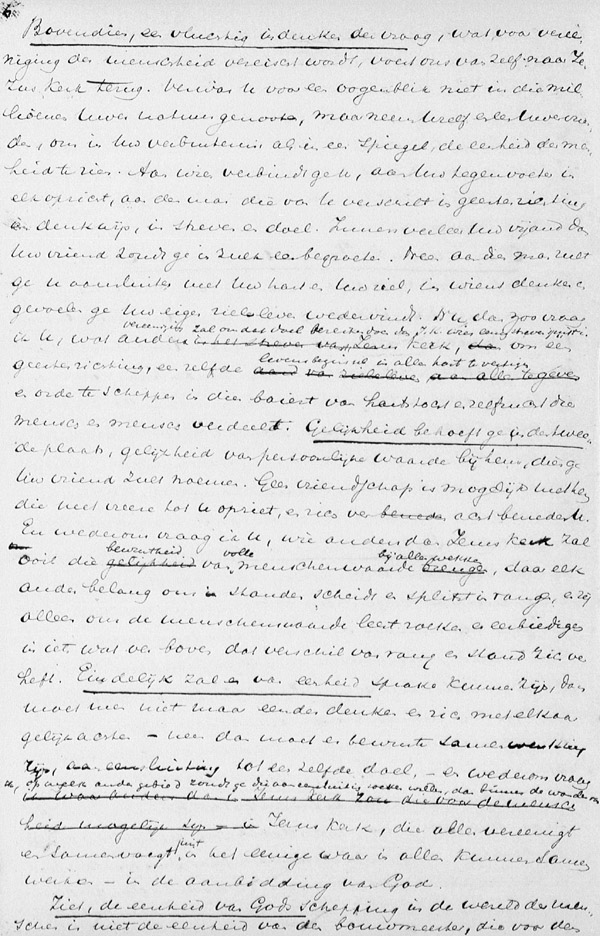 6.
Bovendien, een vluchtig indenken der vraag, wat voor vereeniging
der menschheid vereischt wordt, voert ons van zelf naar Jezus
kerk terug. Verwar u voor een oogenblik niet in die millioenen
Uwer natuurgenooten, maar neem Uzelf en een Uwer vrienden,
om in Uw verbintenis als in een spiegel, de eenheid der menschheid
te zien. Aan wien verbindt ge u, aan Uw tegenvoeter in
elk opzicht, aan den man die van U verschilt in geestesrichting
en denkwijs, in streven en doel. Immers veeleer Uw vijand dan
Uw vriend zoudt ge in zulk een begroeten. Neen aan dien man zult
ge U aansluiten met Uw hart en Uw ziel, in wiens denken en
gevoelen ge Uw eigen zieleleven wedervindt. Nu dan zoo vraag
ik U, wat anders Jezus kerk, om een
geestesrichting, een zelfde levensbeginsel in aller hart te vestigen
en orde te scheppen in dien baiert van hartstocht en zelfzucht die
mensch en mensch verdeelt. Gelijkheid behoeft ge in de tweede
plaats, gelijkheid van persoonlijke waarde bij hem, dien ge
Uw vriend zult noemen. Geen vriendschap is mogelijk met hem
die met vreeze tot U opziet, en zich verre acht beneden U.
En wederom vraag ik u, wie anders dan Jezus kerk zal
ooit die bewustheid van volle menschenwaarde bij allen wekken, daar elk
ander belang ons in standen scheidt en splitst in rangen, en zij
alleen ons de menschenwaarde leert zoeken en eerbiedigen
in iets wat ver boven dat verschil van rang en stand zich verheft.
Eindelijk zal er van eenheid sprake kunnen zijn, dan
moet men niet maar eender denken en zich met elkaar
gelijk achten – neen dan moet er bewuste samenwerking
zijn, aaneensluiting tot een zelfde doel, – en wederom vraag
ik, op welk ander gebied zoudt ge die aaneensluiting zoeken willen, dan binnen de wanden van
Jezus kerk, die allen vereenigt
en samenvoegt juist in het eenige waarin allen kunnen samenwerken
– in de aanbidding van God.
Ziet, de eenheid van Gods schepping in de wereld der menschen
is niet de eenheid van den bouwmeester, die voor den